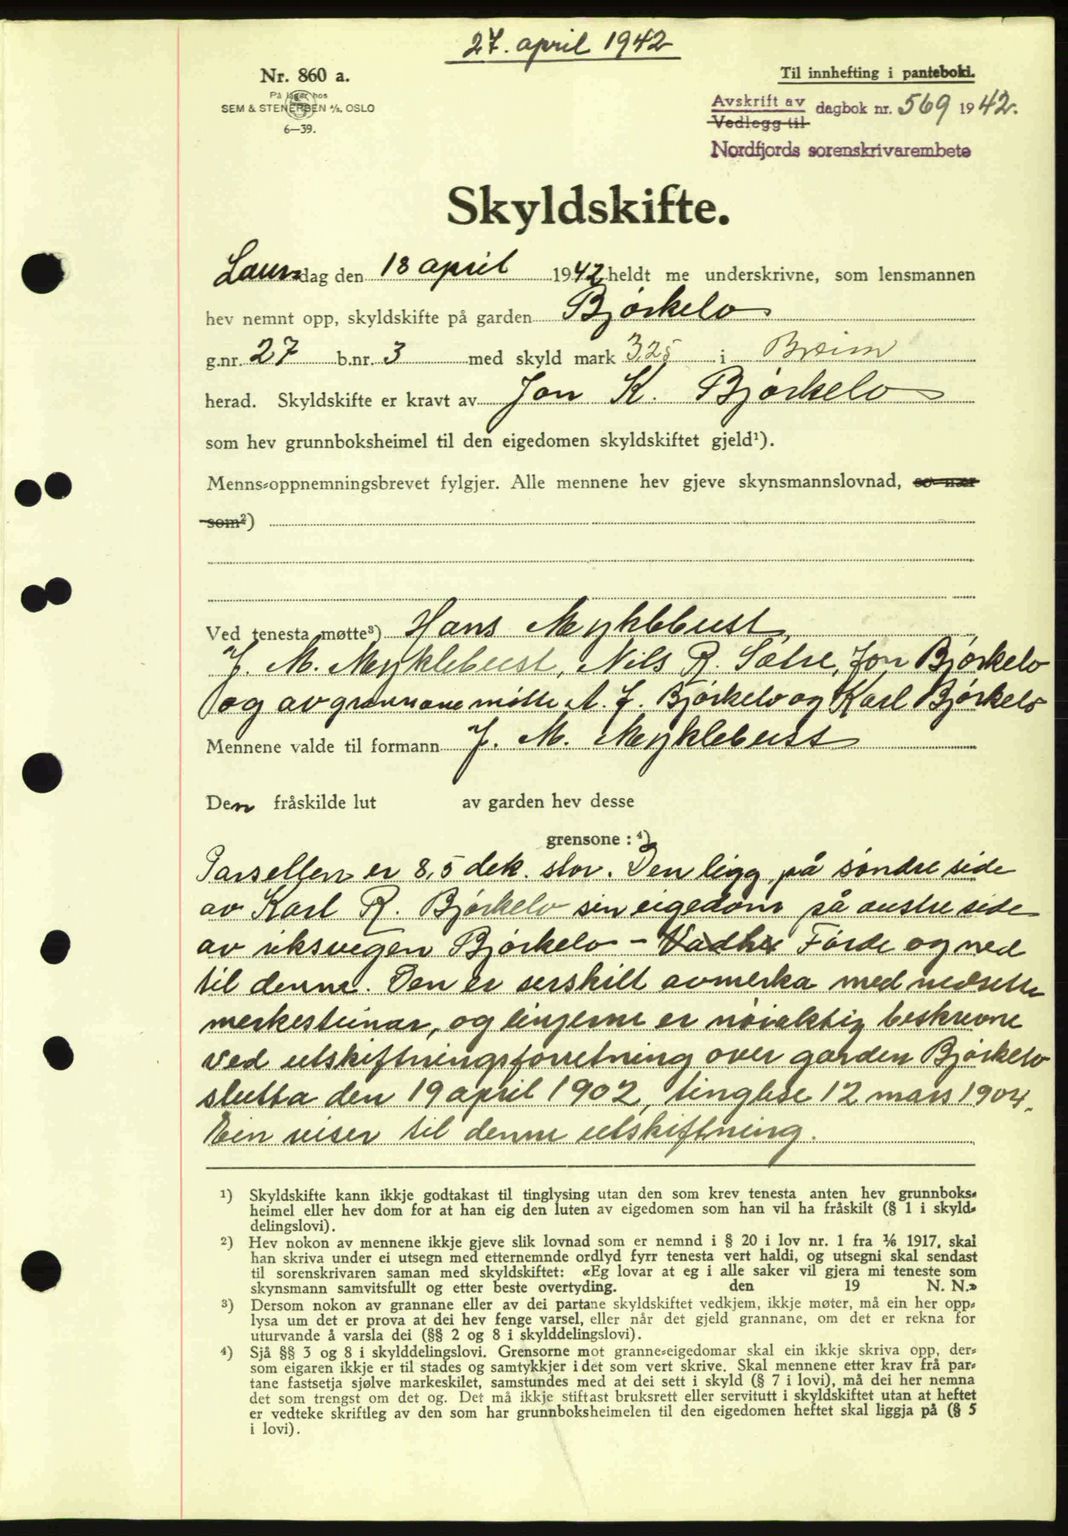 27. april 1942
Nr. 860 a.
På lager hos
SEM & STENERSEN A/S, OSLO
6—39.
Til innhefting i panteboki.
Avskrift av
Vedlegg til
dagbok nr. 569 1942.
Nordfjords sorenskrivarembete
Skyldskifte.
Laurdag den 18 april 1942 heldt me underskrivne, som lensmannen
hev nemnt opp, skyldskifte på garden Bjørkelo
g.nr. 27 b.nr. 3 med skyld mark 3,25 i Breim
herad. Skyldskifte er kravt av Jon K. Bjørkelo
som hev grunnboksheimel til den eigedomen skyldskiftet gjeld¹).
Menns-oppnemningsbrevet fylgjer. Alle mennene hev gjeve skynsmannslovnad, so nær
som²)
Ved tenesta møtte³) Hans Myklebust,
J. M. Myklebust, Nils R. Sætre, Jon Bjørkelo
og av grannane møtte A. J. Bjørkelo og Karl Bjørkelo
Mennene valde til formann J. M. Myklebust
Den fråskilde lut av garden hev desse
grensone : ⁴)
Parsellen er 8,5 dek. stor. Den ligg på søndre side
av Karl R. Bjørkelo sin eigedom på austre side
av riksvegen Bjørkelo – Vadhei Førde og ned
til denne. Den er serskilt avmerka med nedsette
merkesteinar, og linjerne er nøiaktig beskrevne
ved utskiftningsforretning over garden Bjørkelo
slutta den 19 april 1902, tinglese 12 mars 1904.
Ein viser til denne utskiftning.
¹) Skyldskifte kann ikkje godtakast til tinglysing utan den som krev tenesta anten hev grunnboks-
heimel eller hev dom for at han eig den luten av eigedomen som han vil ha fråskilt (§ 1 i skyld-
delingslovi).
²) Hev nokon av mennene ikkje gjeve slik lovnad som er nemnd i § 20 i lov nr. 1 fra 1/6 1917, skal
han skriva under ei utsegn med etternemnde ordlyd fyrr tenesta vert haldi, og utsegni skal sendast
til sorenskrivaren saman med skyldskiftet: «Eg lovar at eg i alle saker vil gjera mi teneste som
skynsmann samvitsfullt og etter beste overtyding. den 19 N. N.»
³) Dersom nokon av grannane eller av dei partane skyldskiftet vedkjem, ikkje møter, må ein her opp-
lysa um det er prova at dei hev fenge varsel, eller når det gjeld grannane, om det er rekna for
uturvande å varsla dei (§§ 2 og 8 i skylddelingslovi).
⁴) Sjå §§ 3 og 8 i skylddelingslovi. Grensorne mot granne-eigedomar skal ein ikkje skriva opp, der-
som eigaren ikkje er til stades og samtykkjer i det som vert skrive. Skal mennene etter krav frå par-
tane fastsetja sjølve markeskilet, samstundes med at dei sett i skyld (§ 7 i lovi), må dei her nemna
det som trengst om det og. Det må ikkje stiftast bruksrett eller servitutt i skyldskiftet utan at heftet
er vedteke skriftleg av den som har grunnboksheimelen til den eigedomen heftet skal liggja på (§ 5
i lovi).